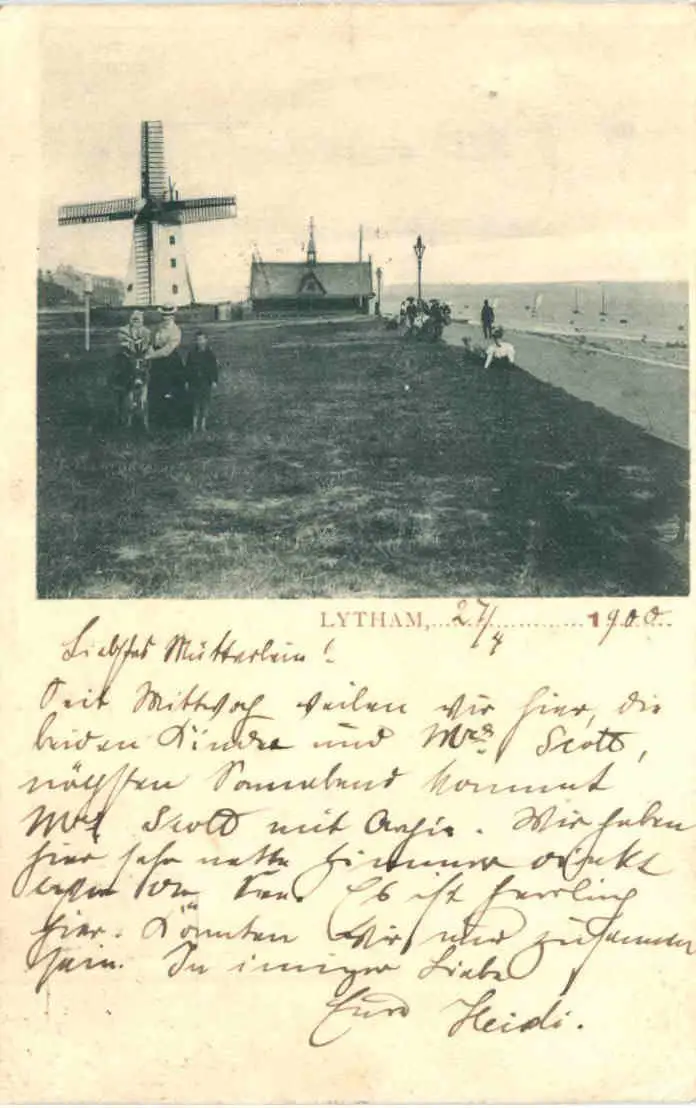 LYTHAM, 27/4 1900
Liebstes Mütterlein!
Seit Mittwoch weilen wir hier, die
beiden Kinder und Mrs Scott,
nächsten Sonnabend kommt
Mrs Scott mit Archie. Wir haben
hier sehr nette Zimmer direkt
an der See. Es ist herrlich
hier. Könnten wir nur zusammen
sein. In inniger Liebe
Eure Heidi.